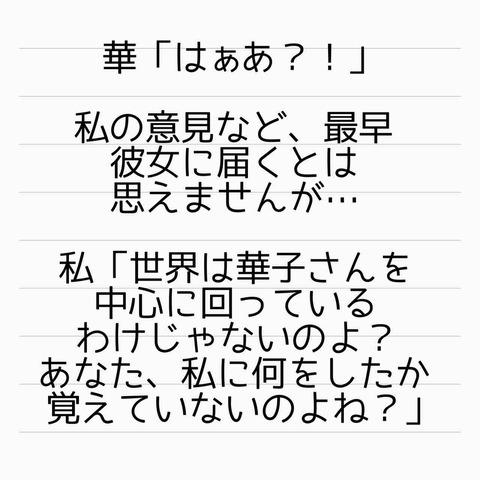 華「はぁあ？！」
私の意見など、最早
彼女に届くとは
思えませんが…
私「世界は華子さんを
中心に回っている
わけじゃないのよ？
あなた、私に何をしたか
覚えていないのよね？」